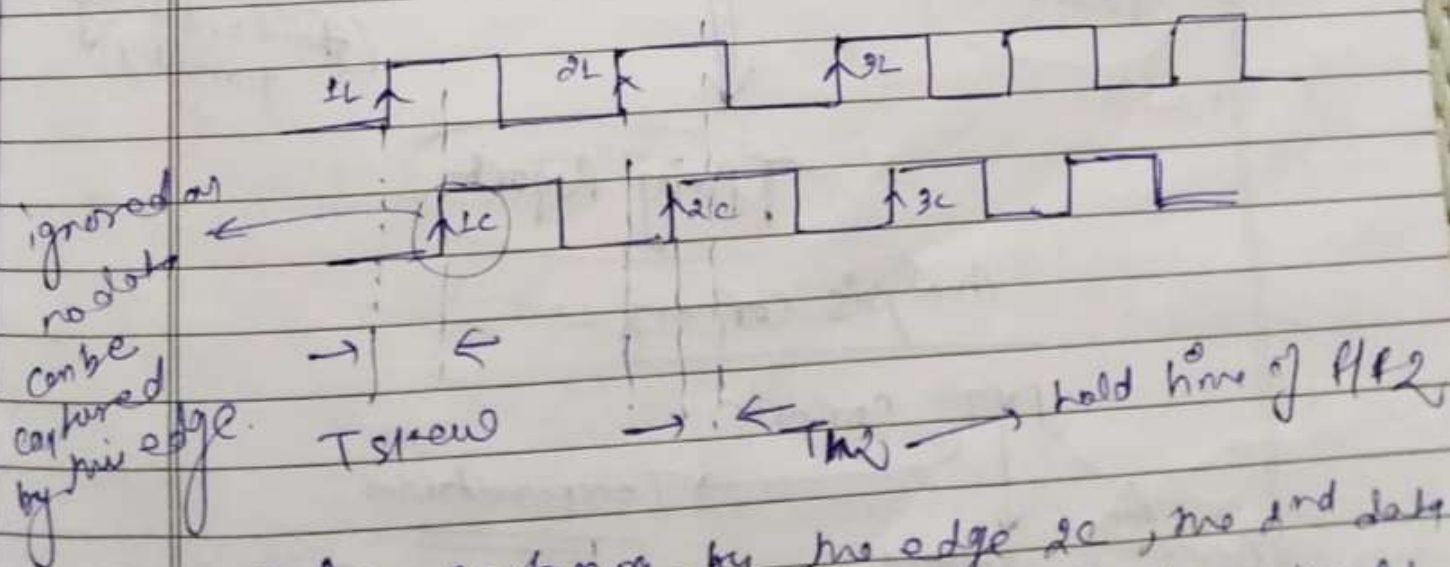 1L 2L 3L
1C 2C 3C
ignored as
no data
can be
captured
by this edge.
Tskew
Th2 hold time of F/F2
by the edge 2C, the 2nd data